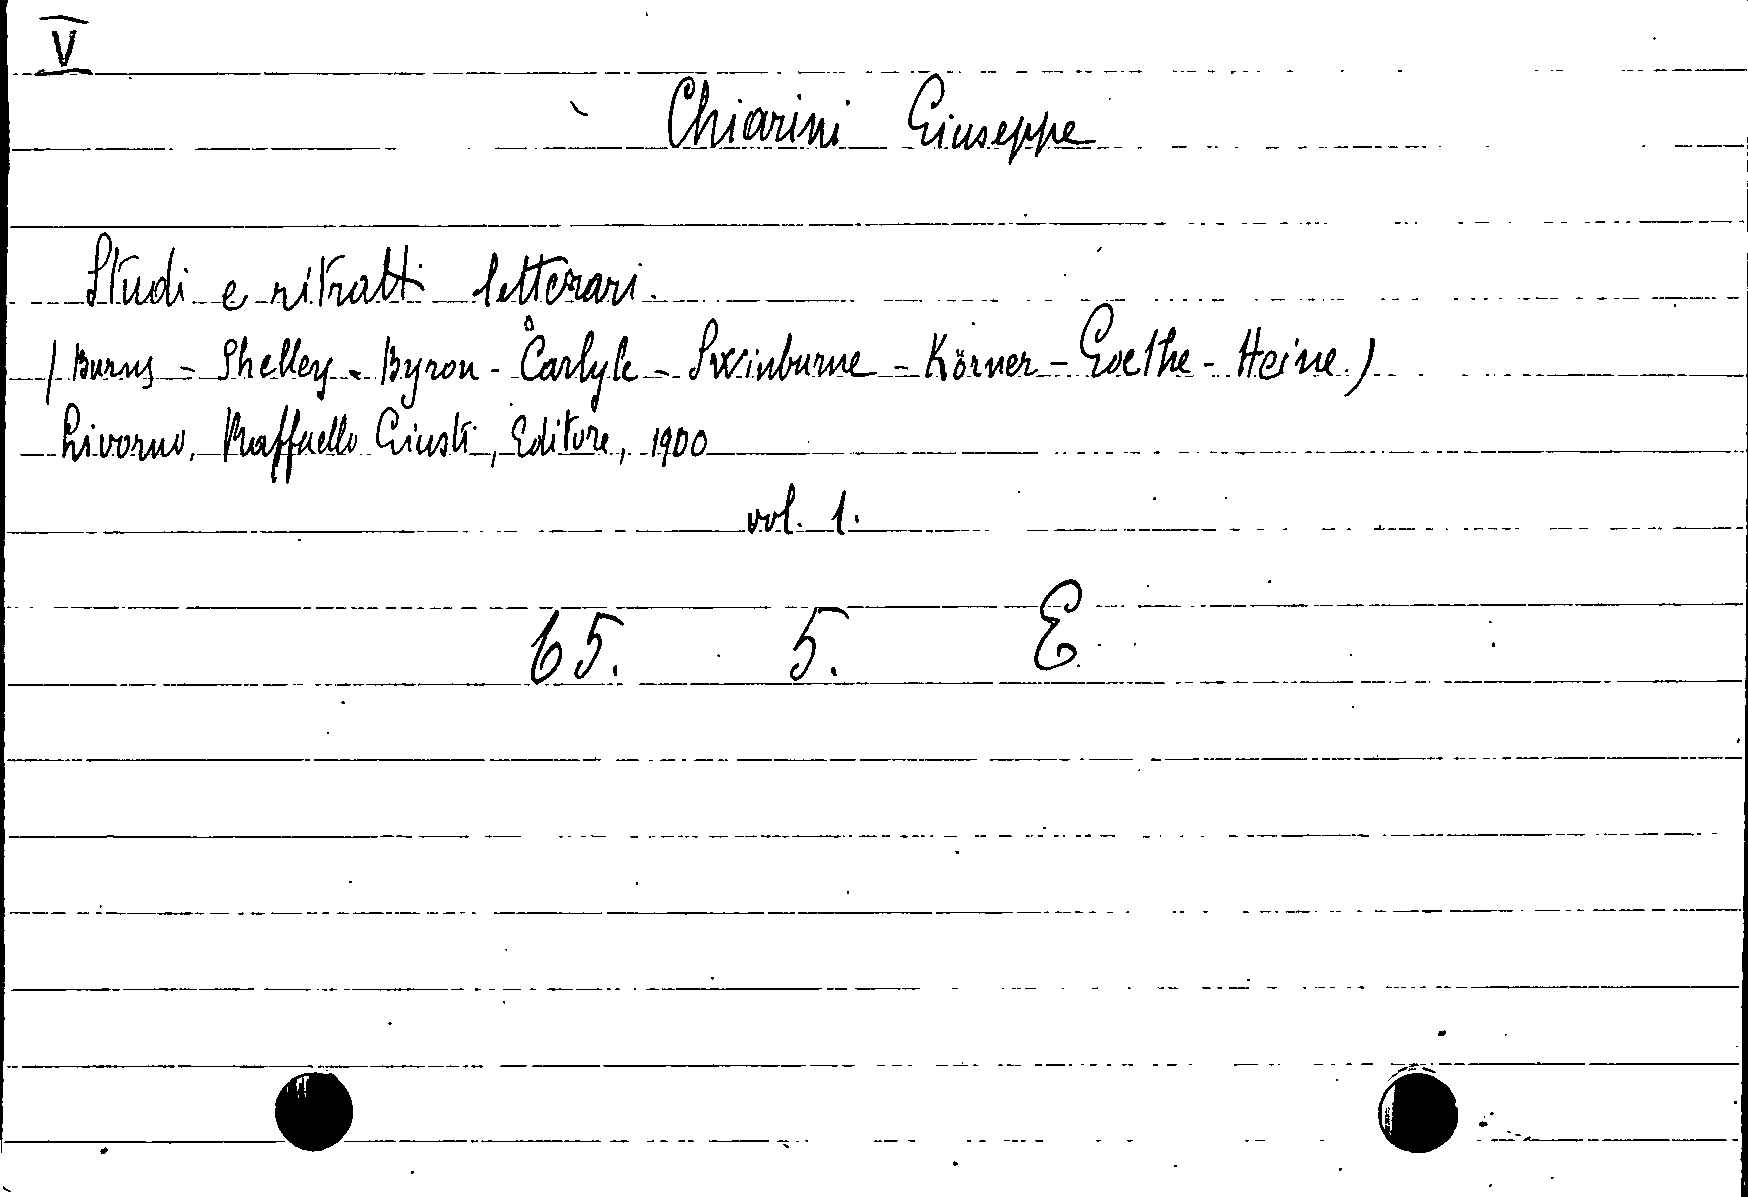 V
Chiarini Giuseppe
Studi e ritratti letterari.
(Burns - Shelley - Byron - Carlyle - Swinburne - Körner - Goethe - Heine)
Livorno, Raffaello Giusti, Editore, 1900
vol. 1.
65. 5. E